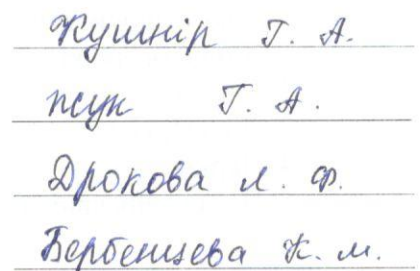 Кушнір Т. А.
Жук Т. А.
Дрокова Л. Ф.
Бербенцева К. М.